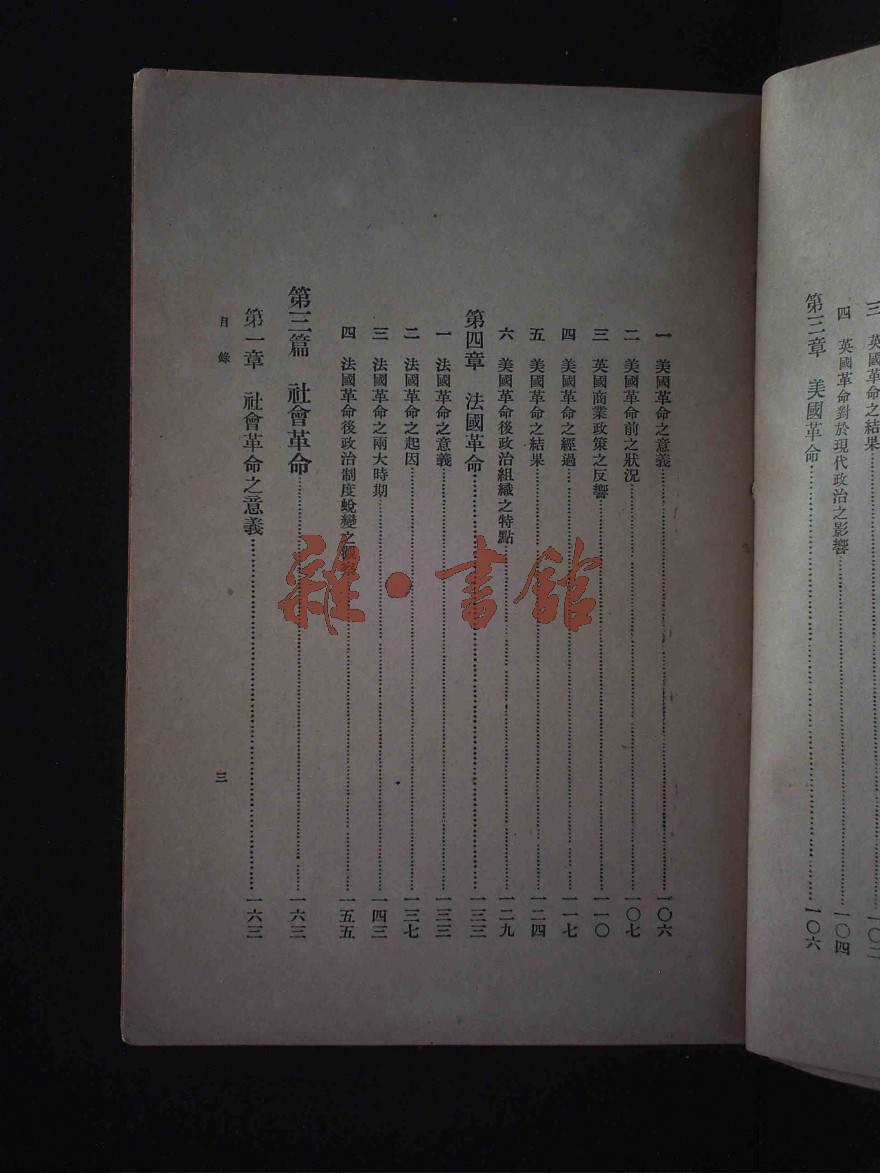 三 英國革命之結果……一〇二
四 英國革命對於現代政治之影響……一〇四
第三章 美國革命……一〇六
一 美國革命之意義……一〇六
二 美國革命前之狀況……一〇七
三 英國商業政策之反響……一一〇
四 美國革命之經過……一一七
五 美國革命之結果……一二四
六 美國革命後政治組織之特點……一二九
第四章 法國革命……一三三
一 法國革命之意義……一三三
二 法國革命之起因……一三七
三 法國革命之兩大時期……一四三
四 法國革命後政治制度蛻變之……一五五
第三篇 社會革命……一六三
第一章 社會革命之意義……一六三
目錄
三
雜·書館